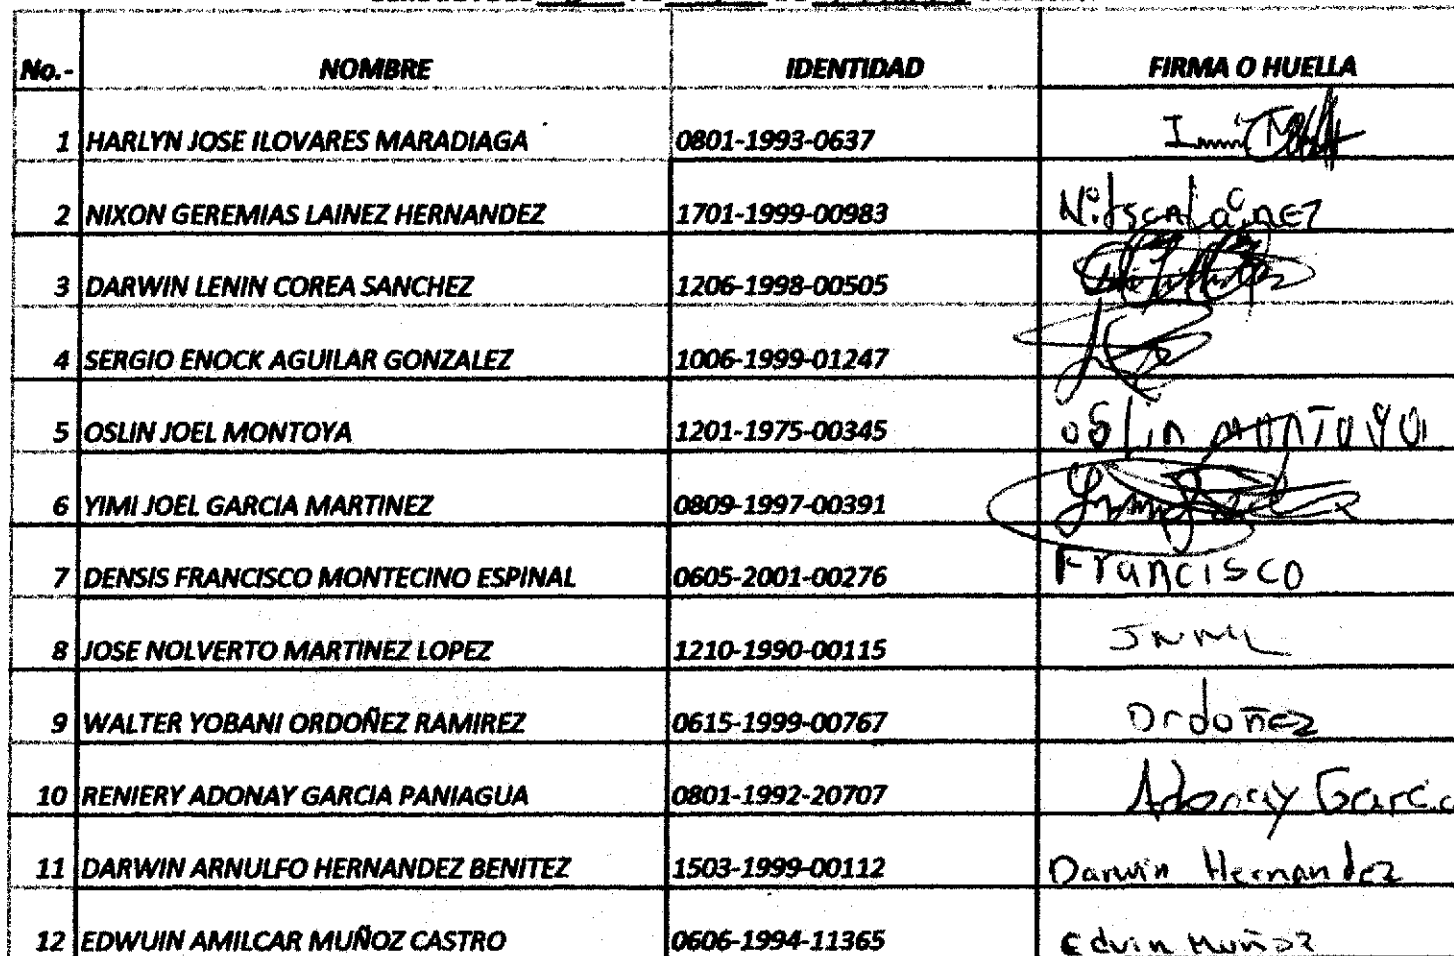 No.- NOMBRE IDENTIDAD FIRMA O HUELLA
1 HARLYN JOSE ILOVARES MARADIAGA 0801-1993-0637
2 NIXON GEREMIAS LAINEZ HERNANDEZ 1701-1999-00983
3 DARWIN LENIN COREA SANCHEZ 1206-1998-00505
4 SERGIO ENOCK AGUILAR GONZALEZ 1006-1999-01247
5 OSLIN JOEL MONTOYA 1201-1975-00345 oslin MONTOYA
6 YIMI JOEL GARCIA MARTINEZ 0809-1997-00391
7 DENSIS FRANCISCO MONTECINO ESPINAL 0605-2001-00276 Francisco
8 JOSE NOLVERTO MARTINEZ LOPEZ 1210-1990-00115
9 WALTER YOBANI ORDOÑEZ RAMIREZ 0615-1999-00767 Ordoñez
10 RENIERY ADONAY GARCIA PANIAGUA 0801-1992-20707 Adonay Garcia
11 DARWIN ARNULFO HERNANDEZ BENITEZ 1503-1999-00112 Darwin Hernandez
12 EDWUIN AMILCAR MUÑOZ CASTRO 0606-1994-11365 Edvin Muñoz